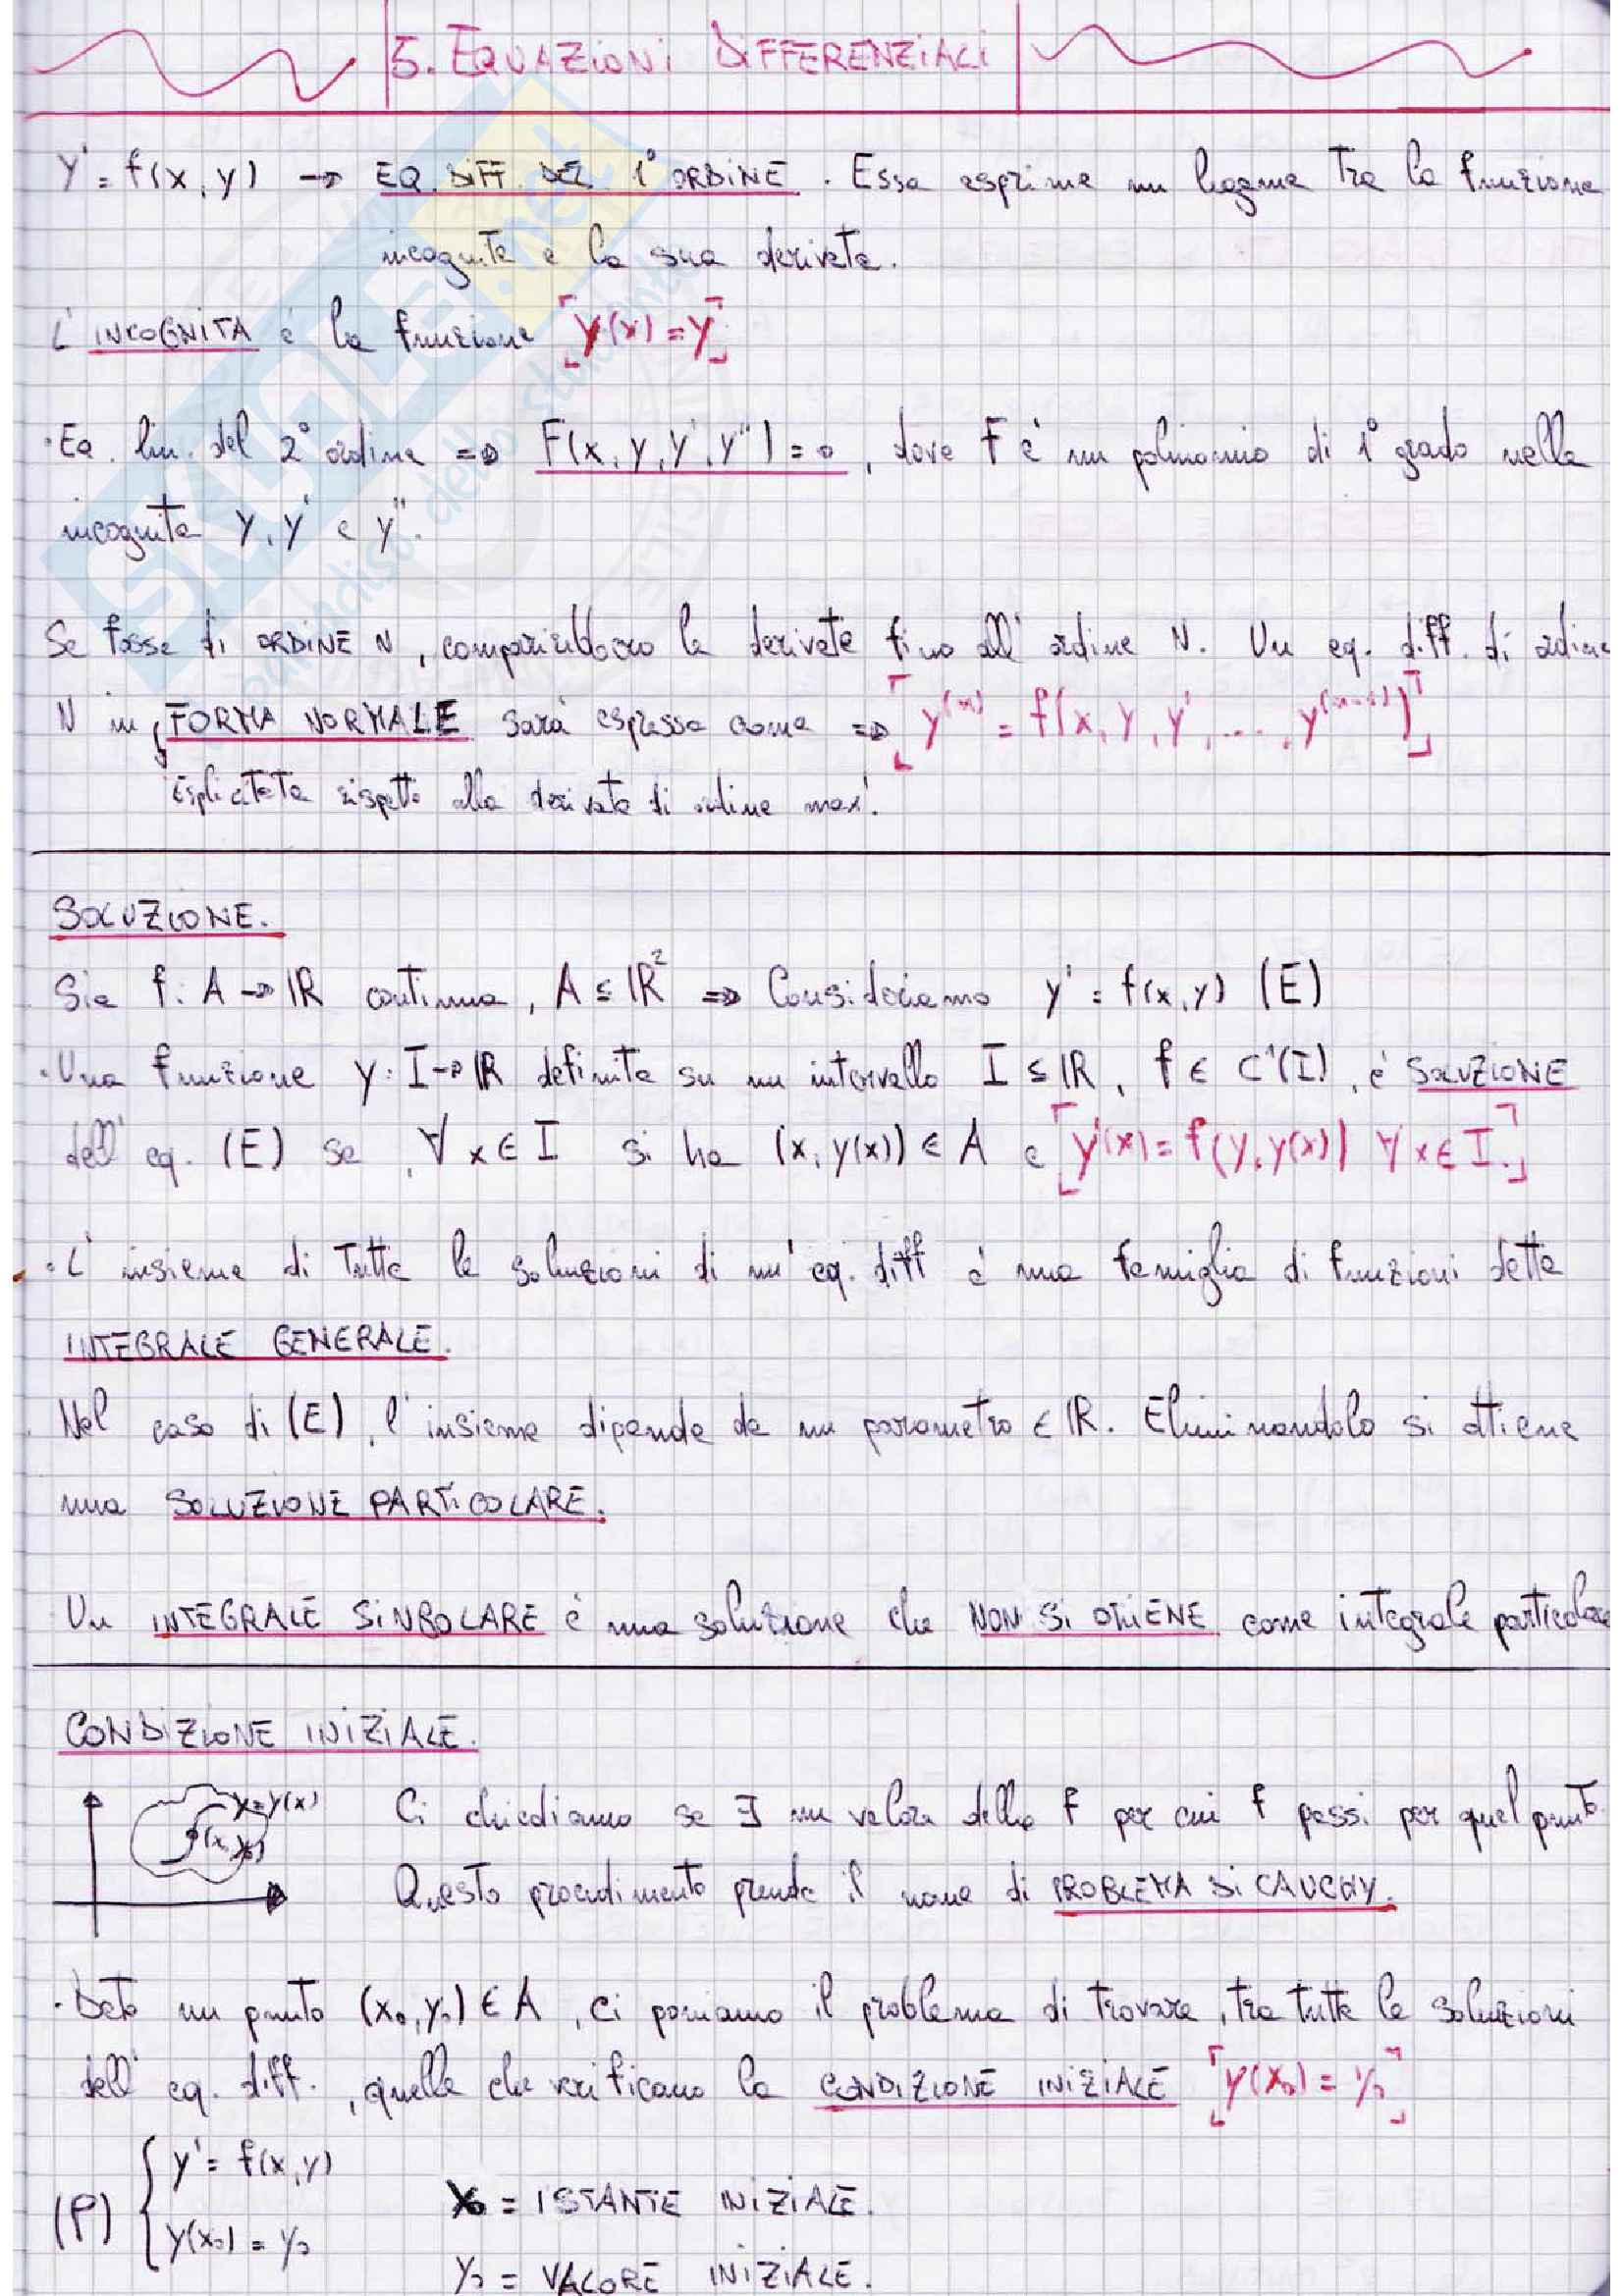 5. EQUAZIONI DIFFERENZIALI
y' = f(x,y) → EQ. DIFF. DEL 1° ORDINE. Essa esprime un legame tra la funzione
incognita e la sua derivata.
L'INCOGNITA è la funzione [y(x) = y]
· Eq. lin. del 2° ordine => F(x,y,y',y'') = 0, dove F è un polinomio di 1° grado nelle
incognite y, y' e y''.
Se fosse di ORDINE N, comparirebbero le derivate fino all'ordine N. Un eq. diff. di ordine
N in FORMA NORMALE sarà espressa come => [y^(n) = f(x, y, y', ..., y^(n-1))]
esplicitata rispetto alla derivata di ordine max.
SOLUZIONE.
Sia f: A → ℝ continua, A ⊆ ℝ² => Consideriamo y' = f(x,y) (E)
· Una funzione y: I → ℝ definita su un intervallo I ⊆ ℝ, f ∈ C¹(I), è SOLUZIONE
dell'eq. (E) se, ∀ x ∈ I si ha (x, y(x)) ∈ A e [y'(x) = f(y, y(x)) ∀ x ∈ I.]
· L'insieme di tutte le soluzioni di un'eq. diff è una famiglia di funzioni detta
INTEGRALE GENERALE.
Nel caso di (E), l'insieme dipende da un parametro ∈ ℝ. Eliminandolo si ottiene
una SOLUZIONE PARTICOLARE.
Un INTEGRALE SINGOLARE è una soluzione che NON SI OTTIENE come integrale particolare
CONDIZIONE INIZIALE.
y=y(x)
(x₀,y₀)
Ci chiediamo se ∃ un valore della f per cui f passi per quel punto.
Questo procedimento prende il nome di PROBLEMA DI CAUCHY.
· Dato un punto (x₀,y₀) ∈ A, ci poniamo il problema di trovare, tra tutte le soluzioni
dell'eq. diff., quelle che verificano la CONDIZIONE INIZIALE [y(x₀) = y₀]
(P) { y' = f(x,y)
y(x₀) = y₀
x₀ = ISTANTE INIZIALE.
y₀ = VALORE INIZIALE.
SKUOLA.net